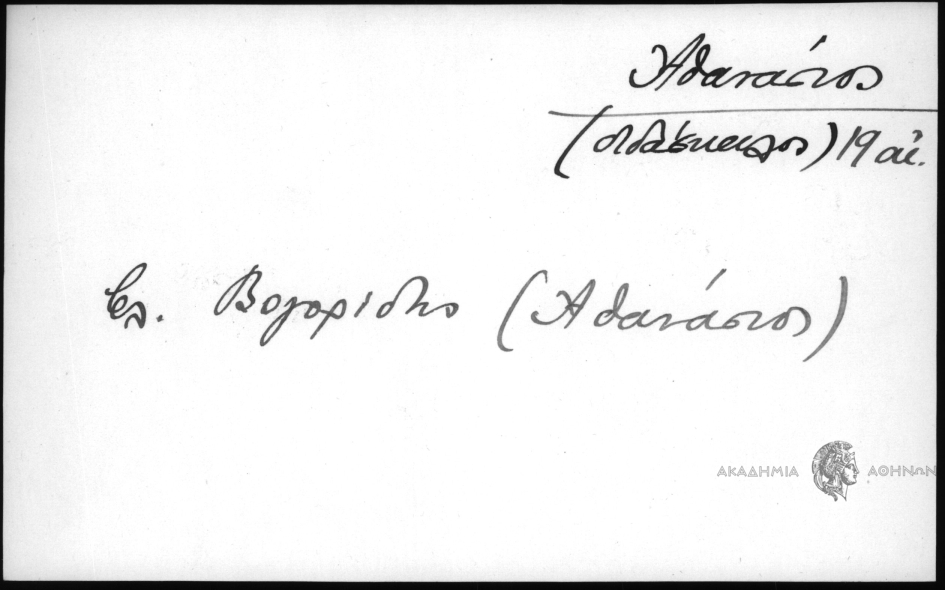 Ἀθανάσιος
(διδάσκαλος) 19 αἰ.
Βλ. Βογορίδης (Ἀθανάσιος)
ΑΚΑΔΗΜΙΑ ΑΘΗΝΩΝ